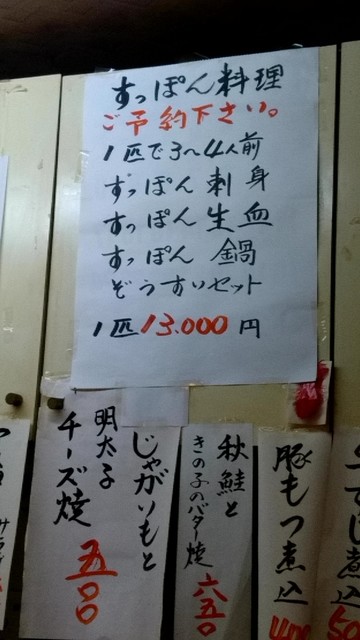 すっぽん料理
ご予約下さい。
1匹で3〜4人前
すっぽん刺身
すっぽん生血
すっぽん鍋
ぞうすいセット
1匹13.000円
じゃがいもと
明太子
チーズ焼
五〇〇
秋鮭と
きの子のバター焼
六五〇
豚もつ煮込